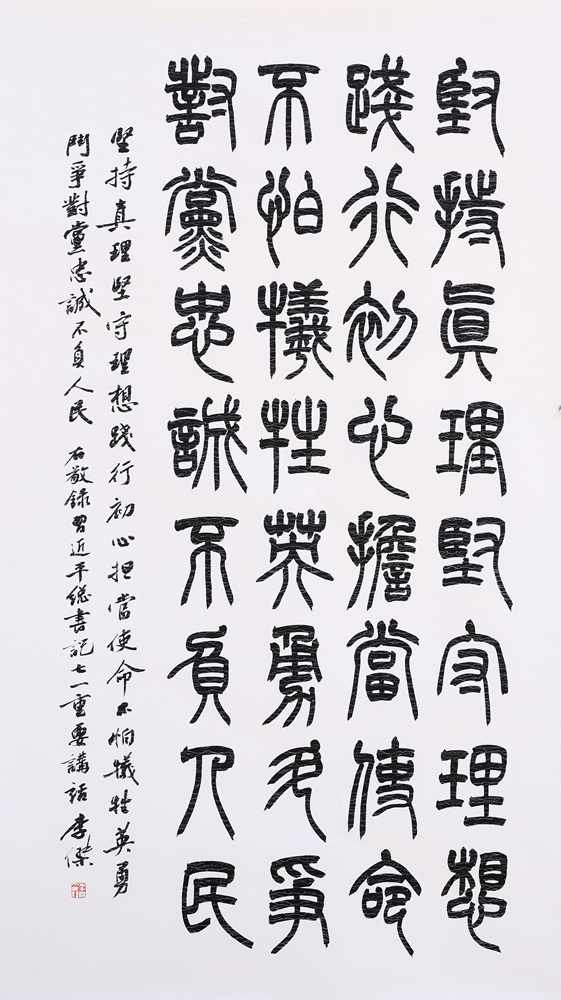 堅持真理堅守理想
踐行初心擔當使命
不怕犧牲英勇鬥爭
對黨忠誠不負人民
堅持真理堅守理想踐行初心担當使命不怕犧牲英勇
鬥爭對黨忠誠不負人民 右敬錄習近平總書記七一重要講話 李傑